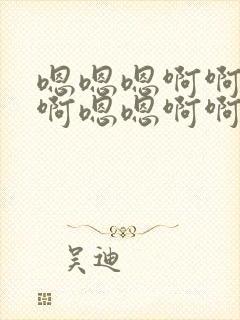 嗯嗯嗯啊啊
啊嗯嗯啊啊
吴迪